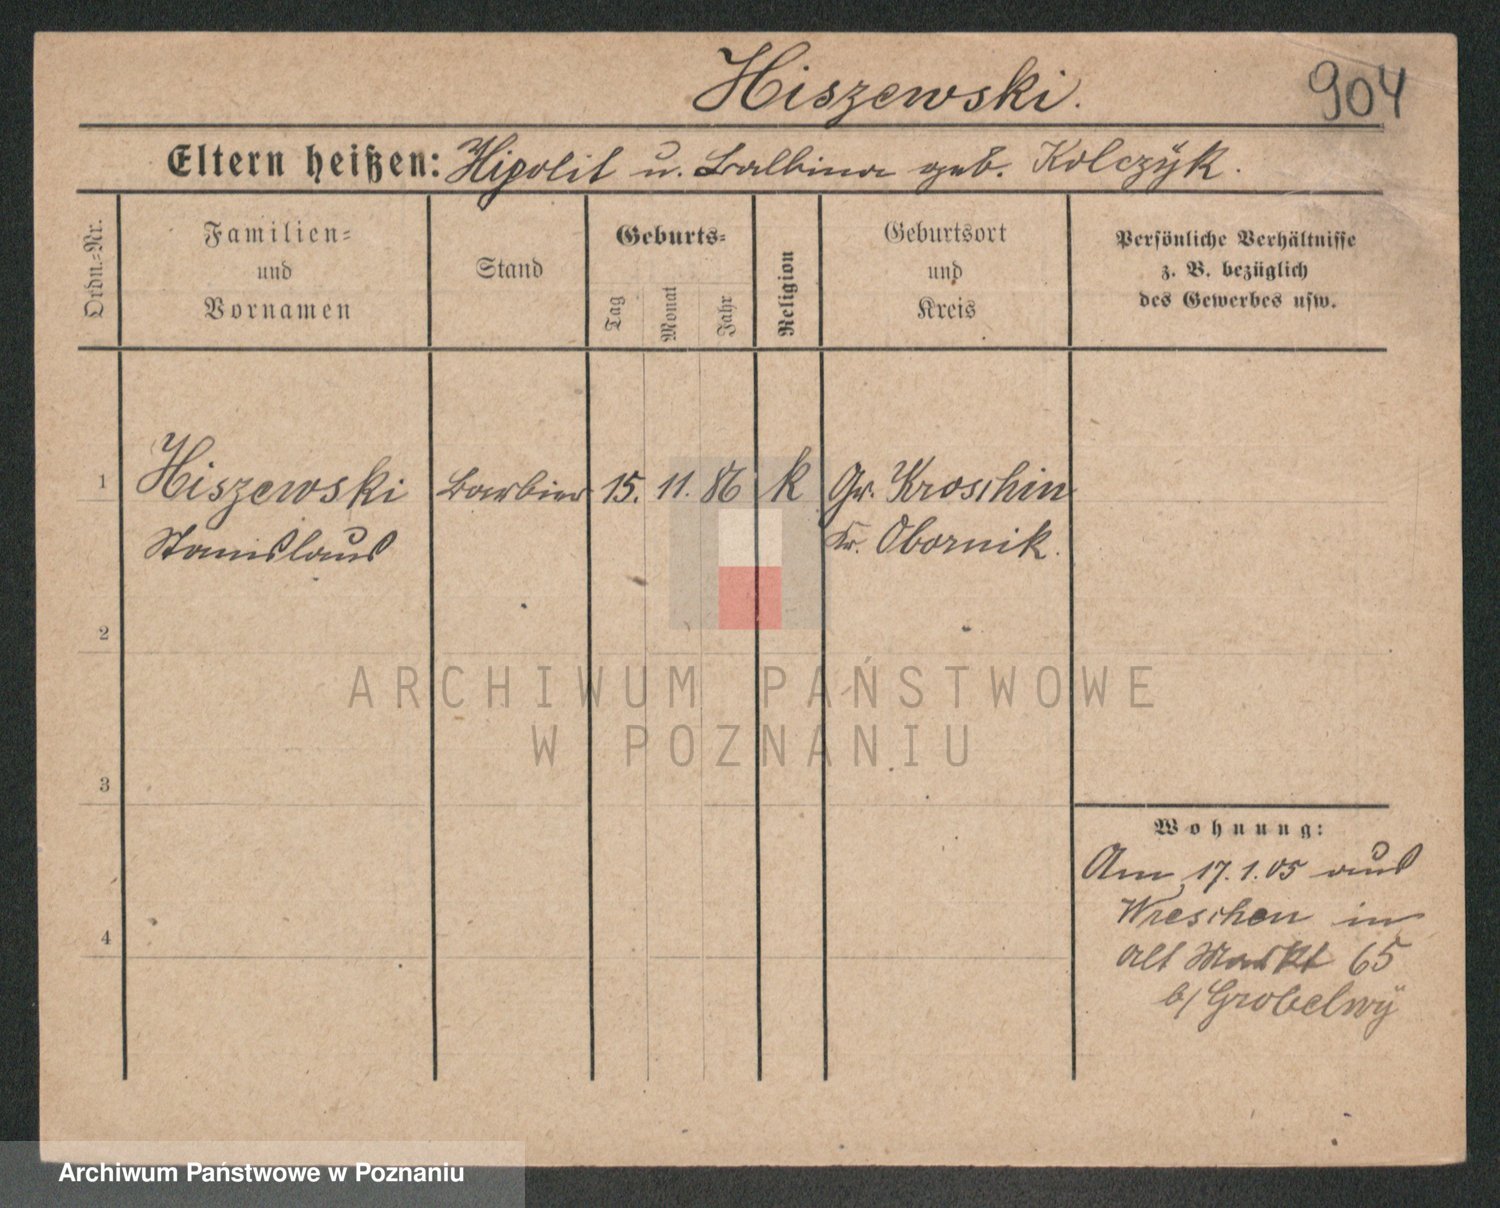 Hiszewski.
904
Eltern heißen: Hipolit u. Balbina geb. Kolczÿk.
Ordn.-Nr.
Familien- und Vornamen
Stand
Geburts-
Tag
Monat
Jahr
Religion
Geburtsort und Kreis
Persönliche Verhältnisse
z. B. bezüglich
des Gewerbes usw.
1 Hiszewski Barbier 15. 11. 86 k Gr. Kroschin
Stanislaus Kr. Obornik.
2
3
4
Wohnung:
Am 17.1.05 aus
Wreschen in
Alt Markt 65
b/ Grobelwÿ
ARCHIWUM PAŃSTWOWE
W POZNANIU
Archiwum Państwowe w Poznaniu